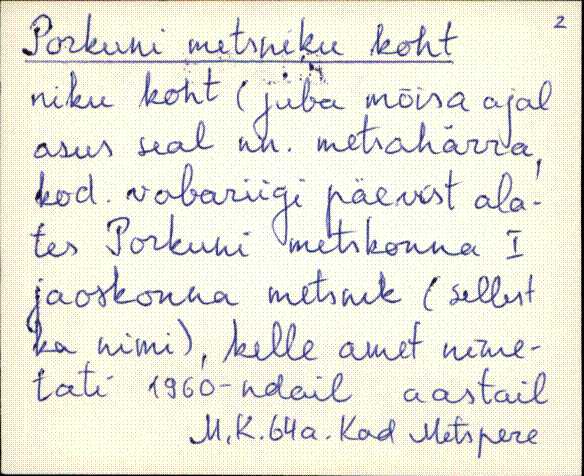 2
Porkuni metsniku koht
niku koht (juba mõisa ajal
asus seal nn. metsahärra,
kod. vabariigi päevist ala-
tes Porkuni metskonna I
jaoskonna metsnik (sellest
ka nimi), kelle amet nime-
tati 1960-ndail aastail
M.K. 64a. Kad Metspere